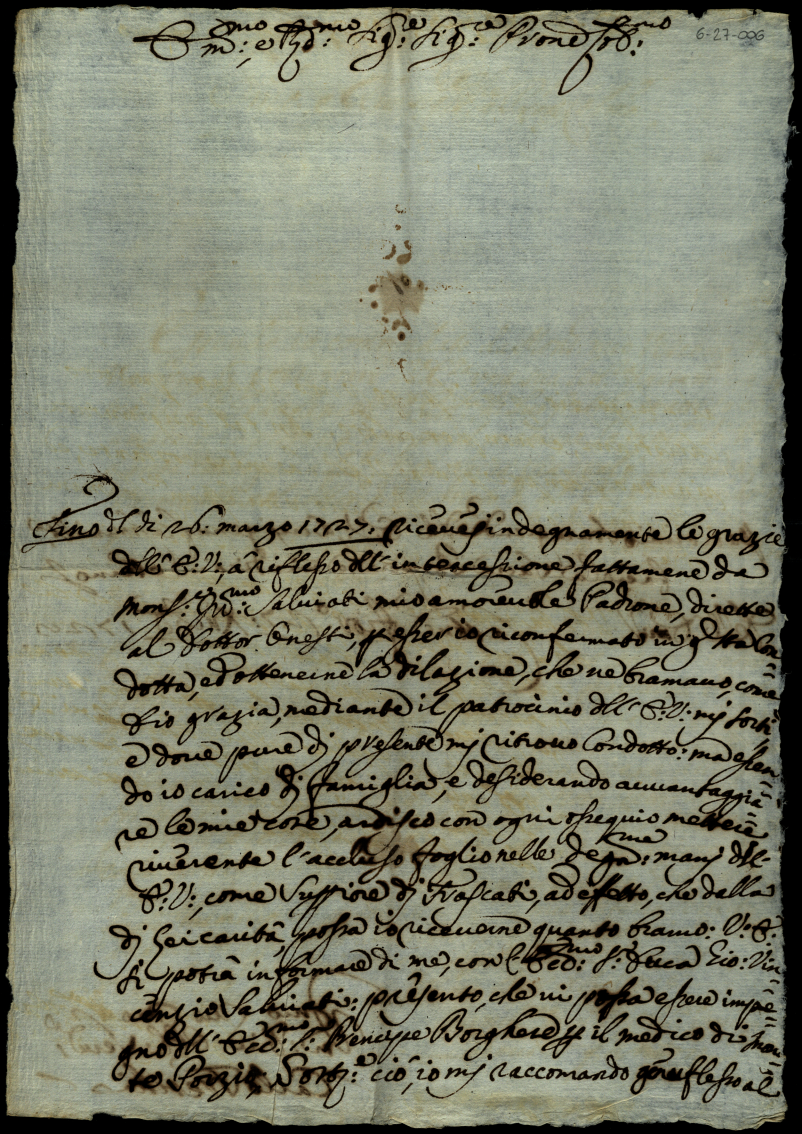 Em:mo, e Rd:mo Sig:re Sig:re Prone Col:mo
6-27-006
Fino dl di 26: marzo 1727. ricevei indegnamente le grazie
dll' E:V:, a riflesso dll' intercessione fattamene da
Mons:r Ill:mo Salviati mio amorevole Padrone, dirette
al Dottor Onesti, p esser io riconfermato in q.sta Con=
dotta, ed ottenerne la dilazione, che ne bramavo, come
Dio grazia, mediante il patrocinio dll' E:V: mi sortì
e dove pure di presente mi ritrovo Condotto: ma essen=
do io carico di famiglia, e desiderando avvantaggia=
re le mie cose, ardisco con ogni ossequio mettere
riverente l'accluso foglio nelle degn:me mani dll'
E:V:, come Suppiore di Frascati, ad effetto, che dalla
di Lei carità, possa io riceverne quanto bramo: V:E:
si potrà informare di me, con l'Ecc:mo S:r Duca Gio: Vin=
cenzio Salviati: presento, che vi possa essere impe=
gno dll' Ecc:mo S:r Prencipe Borghese p il medico di Mon=
te Porzio, ciò, io mi raccomando riflesso al